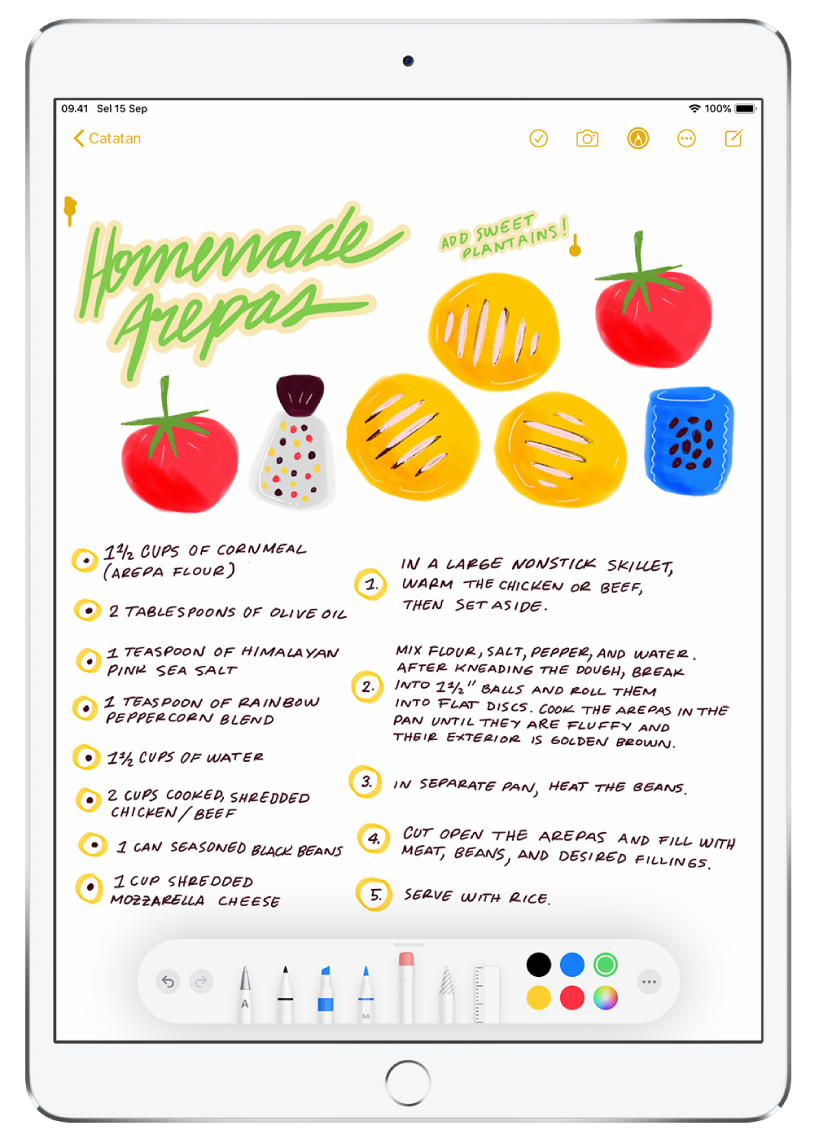 09.41 Sel 15 Sep
100%
Catatan
Homemade
Arepas
ADD SWEET
PLANTAINS!
1 1/2 CUPS OF CORNMEAL
(AREPA FLOUR)
2 TABLESPOONS OF OLIVE OIL
1 TEASPOON OF HIMALAYAN
PINK SEA SALT
1 TEASPOON OF RAINBOW
PEPPERCORN BLEND
1 1/2 CUPS OF WATER
2 CUPS COOKED, SHREDDED
CHICKEN/BEEF
1 CAN SEASONED BLACK BEANS
1 CUP SHREDDED
MOZZARELLA CHEESE
1. IN A LARGE NONSTICK SKILLET,
WARM THE CHICKEN OR BEEF,
THEN SET ASIDE.
2. MIX FLOUR, SALT, PEPPER, AND WATER.
AFTER KNEADING THE DOUGH, BREAK
INTO 1 1/2" BALLS AND ROLL THEM
INTO FLAT DISCS. COOK THE AREPAS IN THE
PAN UNTIL THEY ARE FLUFFY AND
THEIR EXTERIOR IS GOLDEN BROWN.
3. IN SEPARATE PAN, HEAT THE BEANS.
4. CUT OPEN THE AREPAS AND FILL WITH
MEAT, BEANS, AND DESIRED FILLINGS.
5. SERVE WITH RICE.
A
50